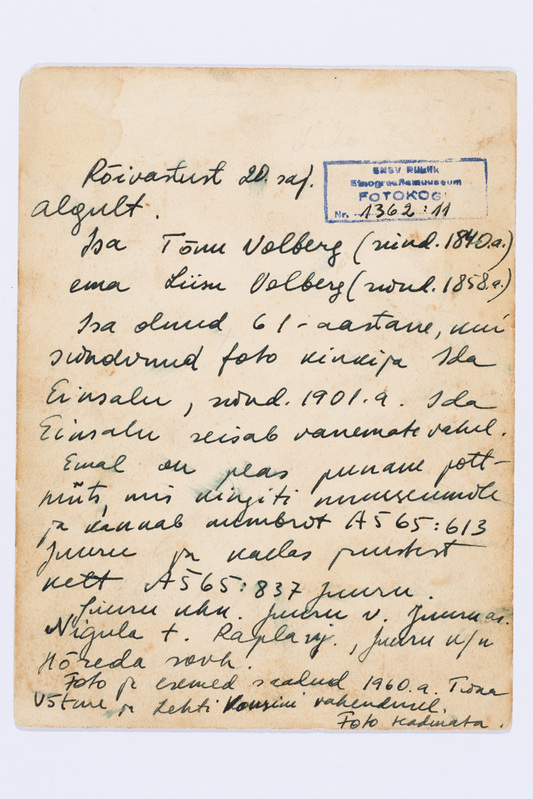 Rõivastust 20. saj.
algult.
ENSV Riiklik
Etnograafiamuuseum
FOTOKOGU
Nr. 1362:11
Isa Tõnu Volberg (sünd. 1840a.)
ema Liisu Volberg (sünd. 1858.a.)
Isa olnud 61-aastane, kui
sündinud foto kinkija Ida
Einsalu, sünd. 1901.a. Ida
Einsalu seisab vanemate vahel.
Emal on peas punane pott-
müts, mis kingiti muuseumile
ja kannab numbrit A 565:613
Juuru ja kaelas puusist
kett A 565:837 Juuru.
Juuru khk. Juuru v.
Nigula t. Rapla raj., Juuru k/n
Hõreda sovh.
Foto ja esemed saadud 1960.a. Tiina
Võtme ja Lehti vahendusel.
Foto teadmata.